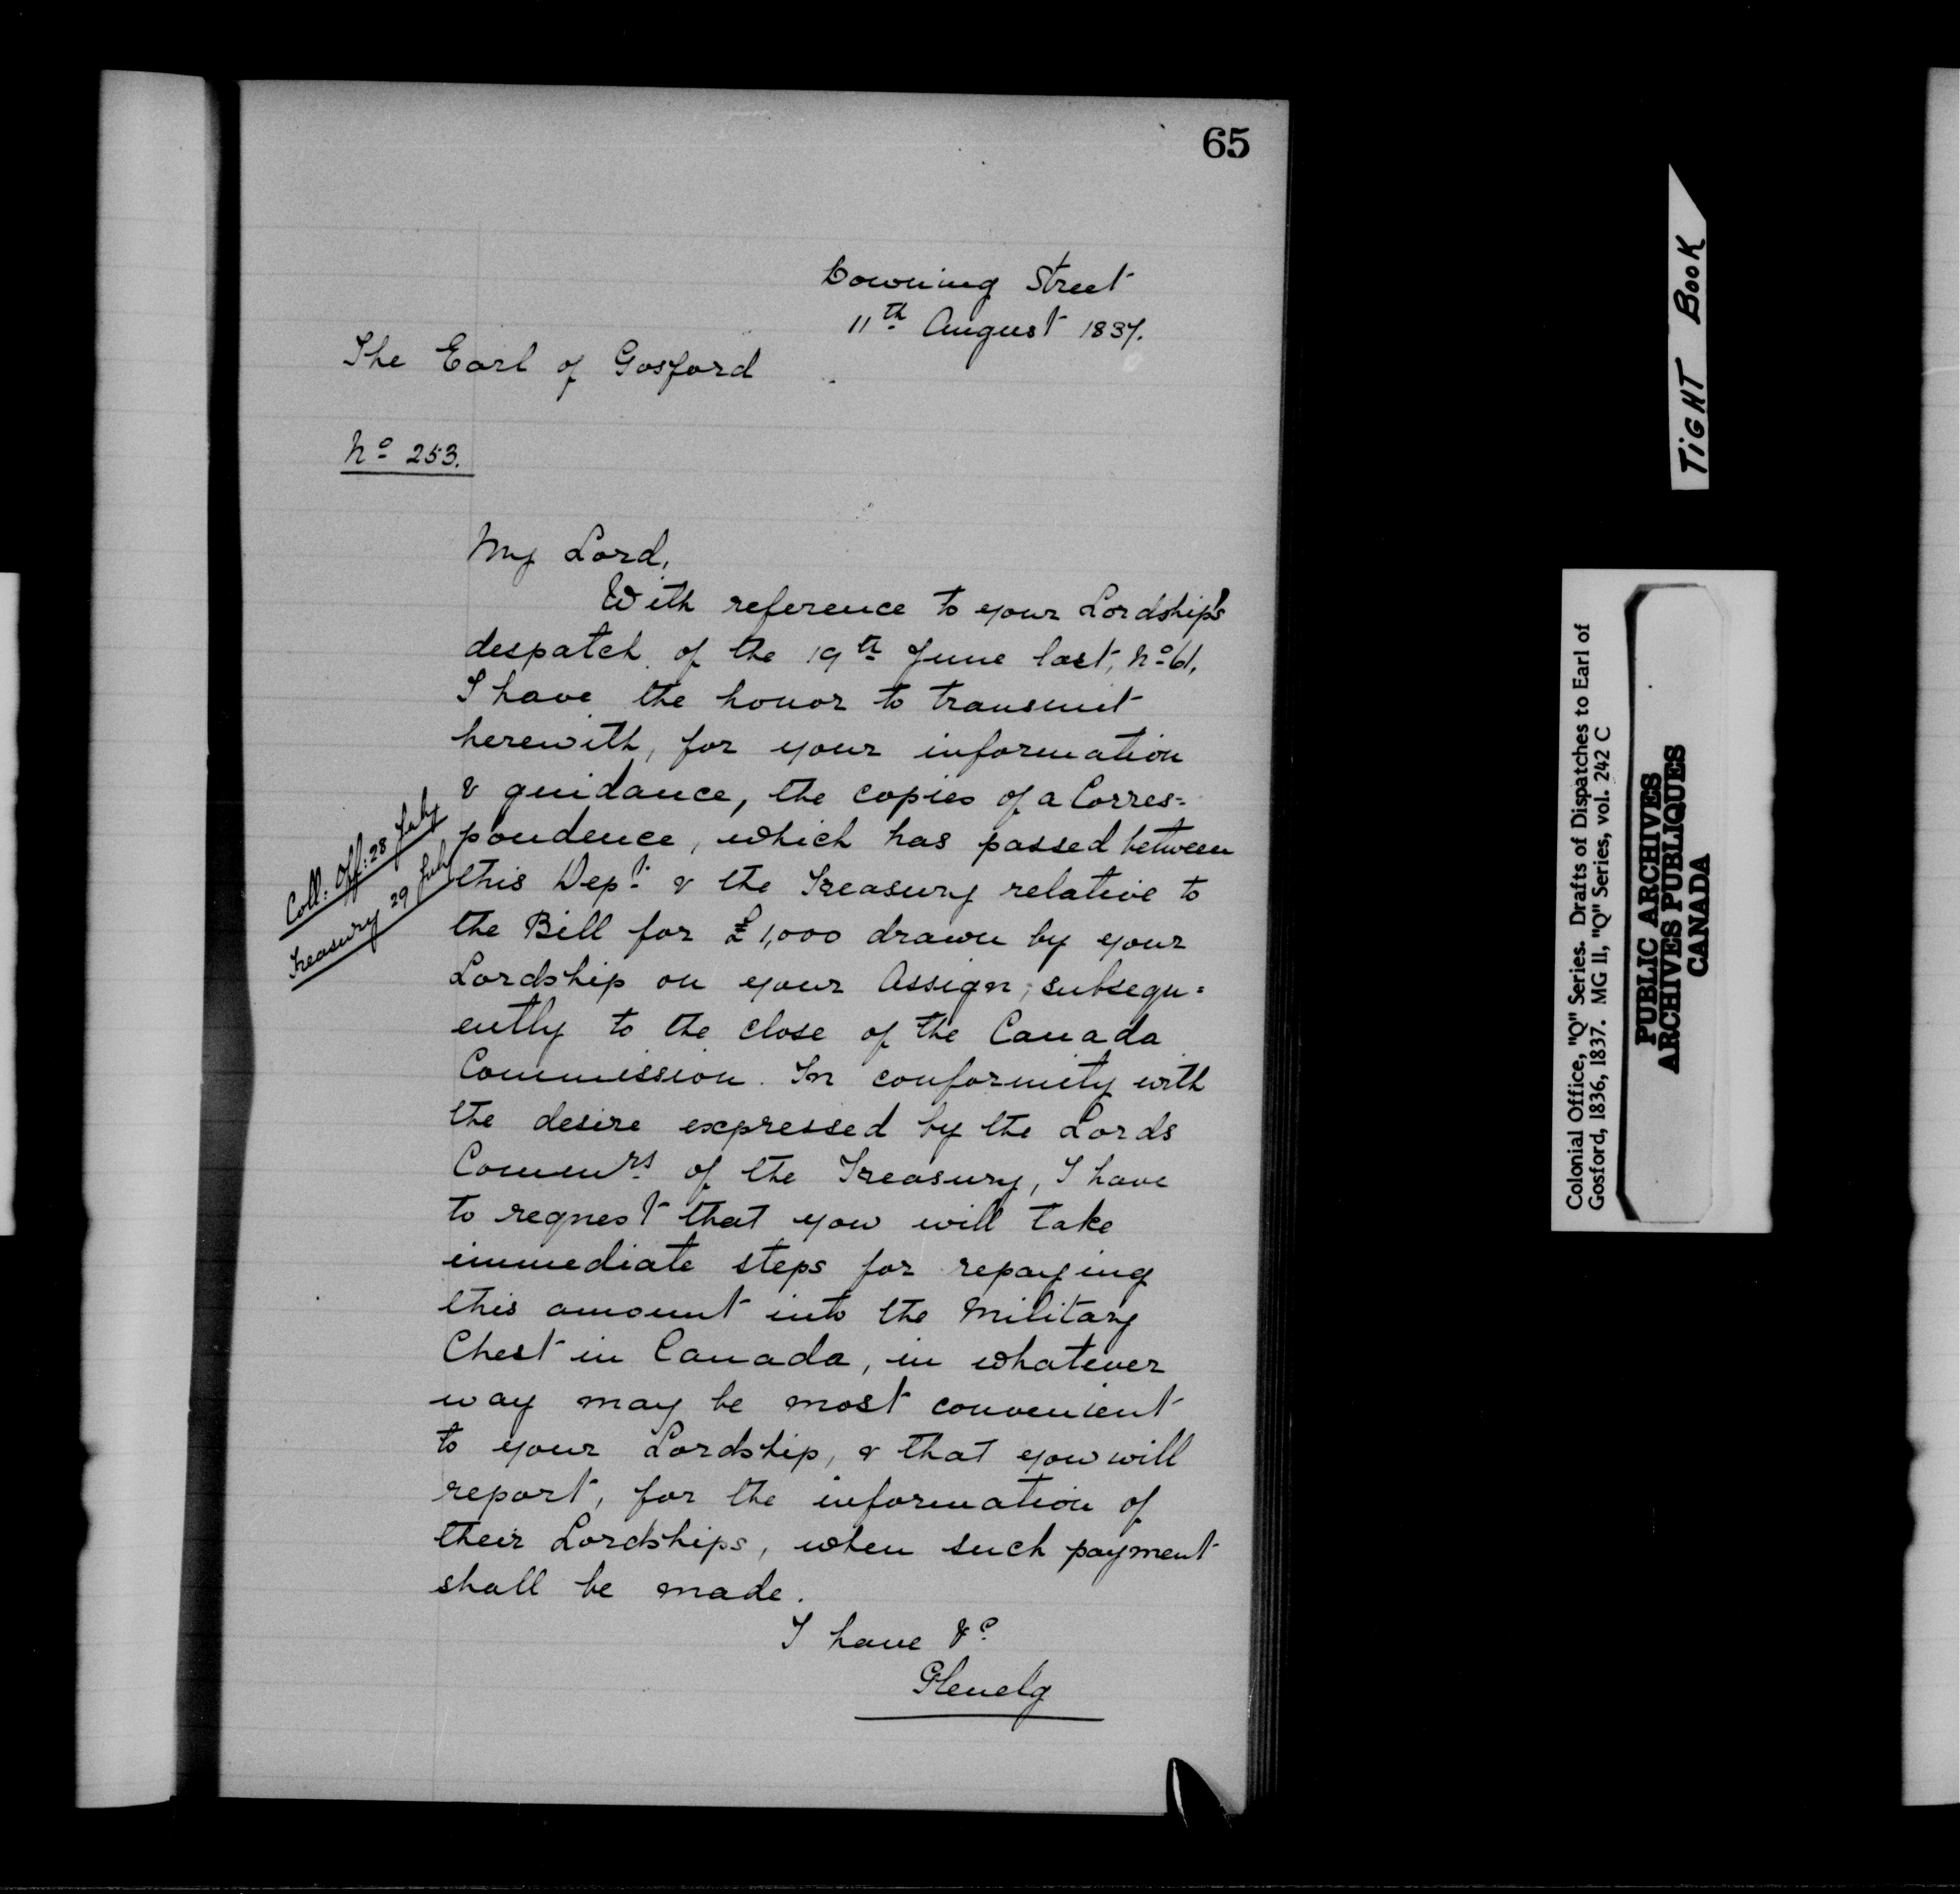 65
Downing Street
11th August 1837.
The Earl of Gosford
No 253.
My Lord,
With reference to your Lordship's
despatch of the 19th June last, No 61,
I have the honor to transmit
herewith, for your information
& guidance, the copies of a Corres=
pondence, which has passed between
this Dept. & the Treasury relative to
the Bill for £1,000 drawn by your
Lordship on your Assign, subsequ=
ently to the close of the Canada
Commission. In conformity with
the desire expressed by the Lords
Commrs of the Treasury, I have
to request that you will take
immediate steps for repaying
this amount into the Military
Chest in Canada, in whatever
way may be most convenient
to your Lordship, & that you will
report, for the information of
their Lordships, when such payment
shall be made.
I have &c
Glenelg
Coll: Off: 28 July
Treasury 29 July
TIGHT BOOK
Colonial Office, "Q" Series. Drafts of Dispatches to Earl of
Gosford, 1836, 1837. MG 11, "Q" Series, vol. 242 C
PUBLIC ARCHIVES
ARCHIVES PUBLIQUES
CANADA